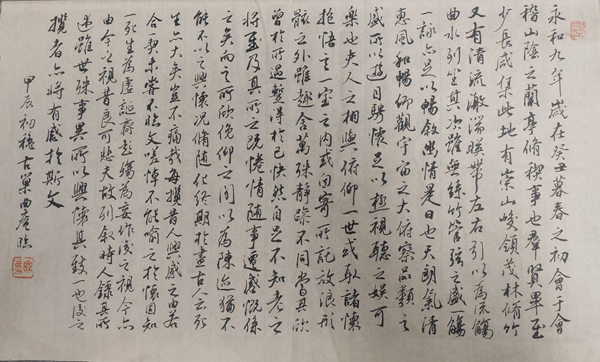 永和九年歲在癸丑暮春之初會于會
稽山陰之蘭亭脩稧事也羣賢畢至
少長咸集此地有崇山峻領茂林脩竹
又有清流激湍暎帶左右引以為流觴
曲水列坐其次雖無絲竹管弦之盛一觴
一詠亦足以暢敘幽情是日也天朗氣清
惠風和暢仰觀宇宙之大俯察品類之
盛所以遊目騁懷足以極視聽之娛可
樂也夫人之相與俯仰一世或取諸懷
抱悟言一室之內或因寄所託放浪形
骸之外雖趣舍萬殊靜躁不同當其欣
於所遇暫得於己快然自足不知老之
將至及其所之既惓情隨事遷感慨係
之矣向之所欣俛仰之間以為陳迹猶不
能不以之興懷況脩隨化終期於盡古人云死
生亦大矣豈不痛哉每攬昔人興感之由若
合一契未嘗不臨文嗟悼不能喻之於懷固知
一死生為虛誕齊彭殤為妄作後之視今亦
由今之視昔良可悲夫故列敘時人錄其所
述雖世殊事異所以興懷其致一也後之
攬者亦將有感於斯文
甲辰初穐古巢曲庵臨